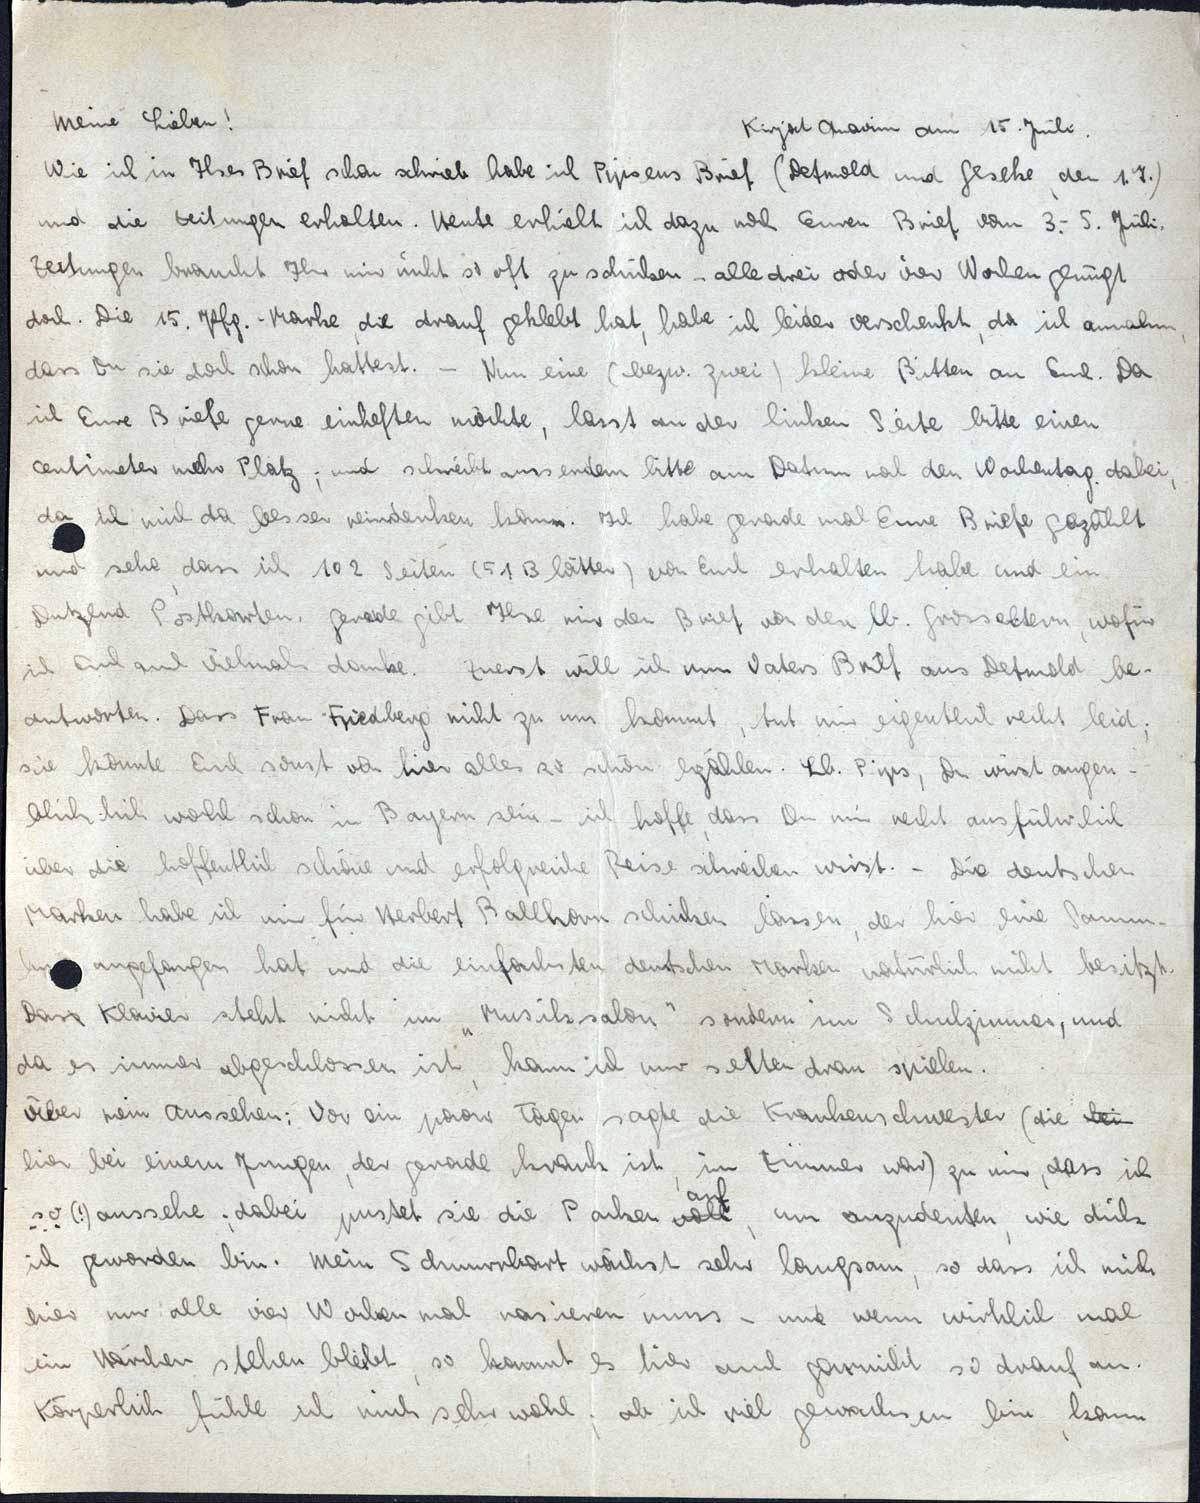 Meine Lieben!
Kirjat Anavim am 15. Juli.
Wie ich in Ilses Brief schon schrieb habe ich Pipsens Brief (Detmold und Geseke, den 1.7.)
und die Zeitungen erhalten. Heute erhielt ich dazu noch Euren Brief vom 3.-5. Juli.
Zeitungen braucht Ihr mir nicht so oft zu schicken - alle drei oder vier Wochen genügt
doch. Die 15. Pfg.-Marke, die drauf geklebt hat, habe ich leider verschenkt, da ich annahm,
dass Du sie doch schon hattest. - Nun eine (bezw. zwei) kleine Bitten an Euch. Da
ich Eure Briefe gerne einheften möchte, lasst an der linken Seite bitte einen
centimeter mehr Platz; und schreibt ausserdem bitte am Datum noch den Wochentag dabei,
da ich mich da besser reindenken kann. Ich habe gerade mal Eure Briefe gezählt
und sehe, dass ich 102 Seiten (51 Blätter) von Euch erhalten habe und ein
Dutzend Postkarten. Gerade gibt Ilse mir den Brief von den lb. Grosseltern, wofür
ich Euch auch vielmals danke. Zuerst will ich nun Vaters Brief aus Detmold be-
antworten. Dass Frau Friedberg nicht zu uns kommt, tut mir eigentlich recht leid;
sie könnte Euch sonst von hier alles so schön erzählen. Lb. Pips, Du wirst augen-
blick-lich wohl schon in Bayern sein - ich hoffe, dass Du mir recht ausführlich
über die hoffentlich schöne und erfolgreiche Reise schreiben wirst. - Die deutschen
Marken habe ich mir für Herbert Ballhorn schicken lassen, der hier eine Samm-
lung angefangen hat und die einfachsten deutschen Marken natürlich nicht besitzt.
Dass Klavier steht nicht im „Musiksalon" sondern im Schulzimmer, und
da es immer abgeschlossen ist, kann ich nur selten dran spielen.
Über mein Aussehen: Vor ein paar Tagen sagte die Krankenschwester (die bei
hier bei einem Jungen, der gerade krank ist, im Zimmer war) zu mir, dass ich
so (!) aussehe; dabei pustet sie die Backen auf, um anzudeuten, wie dick
ich geworden bin. Mein Schnurrbart wächst sehr langsam, so dass ich mich
hier nur alle vier Wochen mal rasieren muss - und wenn wirklich mal
ein Härchen stehen bleibt, so kommt es hier auch garnicht so drauf an.
Körperlich fühle ich mich sehr wohl; ob ich viel gewachsen bin, kann